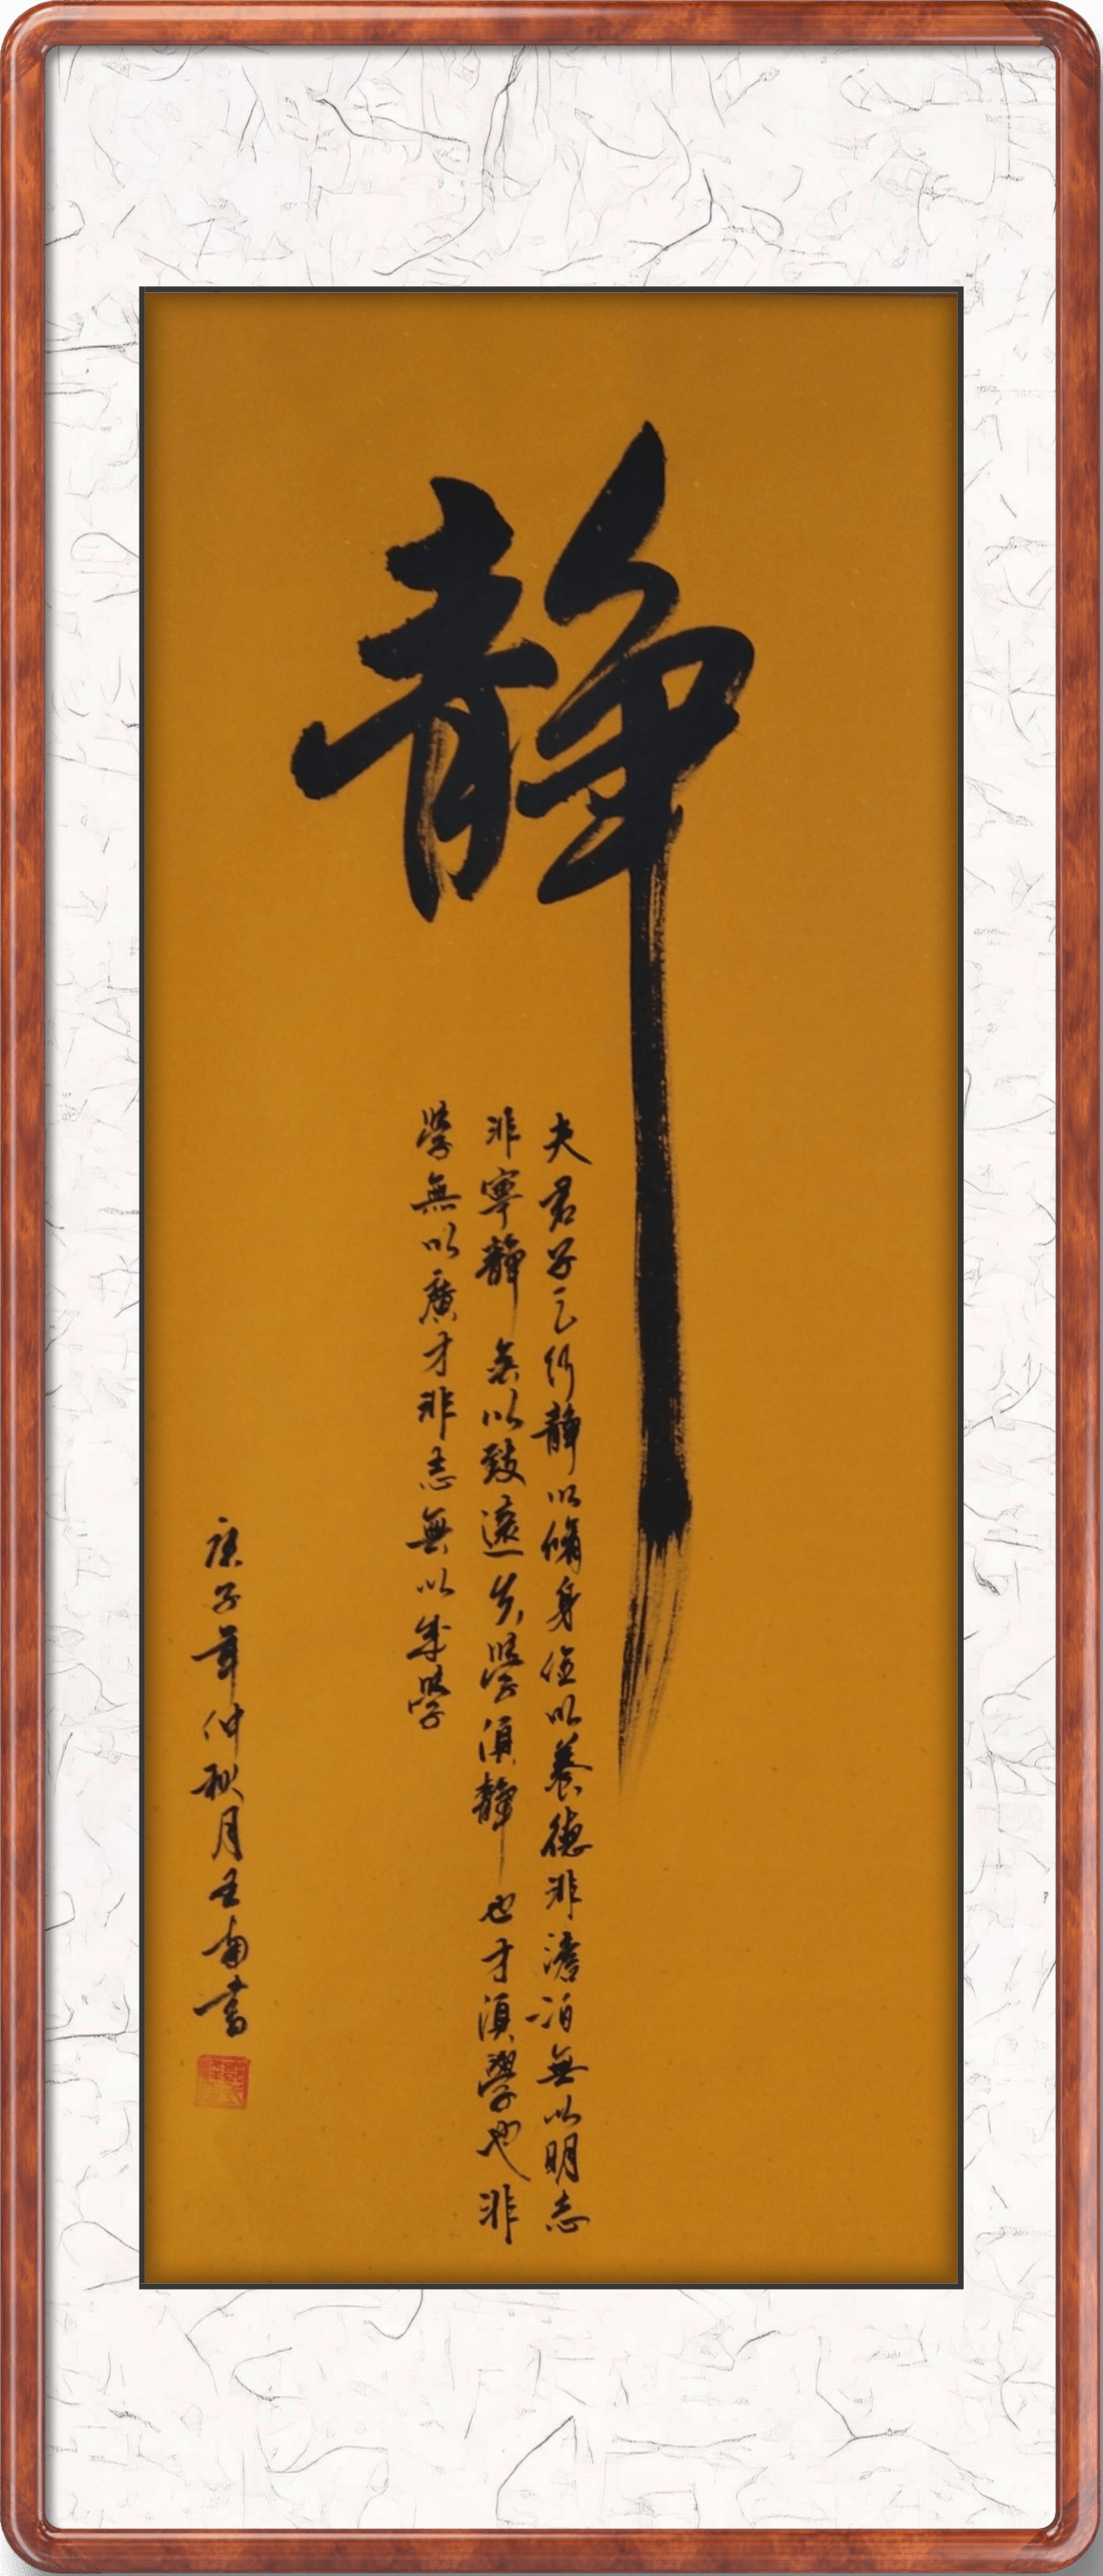 静
夫君子之行静以脩身俭以養德非澹泊無以明志
非寧静無以致遠夫學須静也才須學也非
學無以廣才非志無以成學
庚子年仲秋月王南書